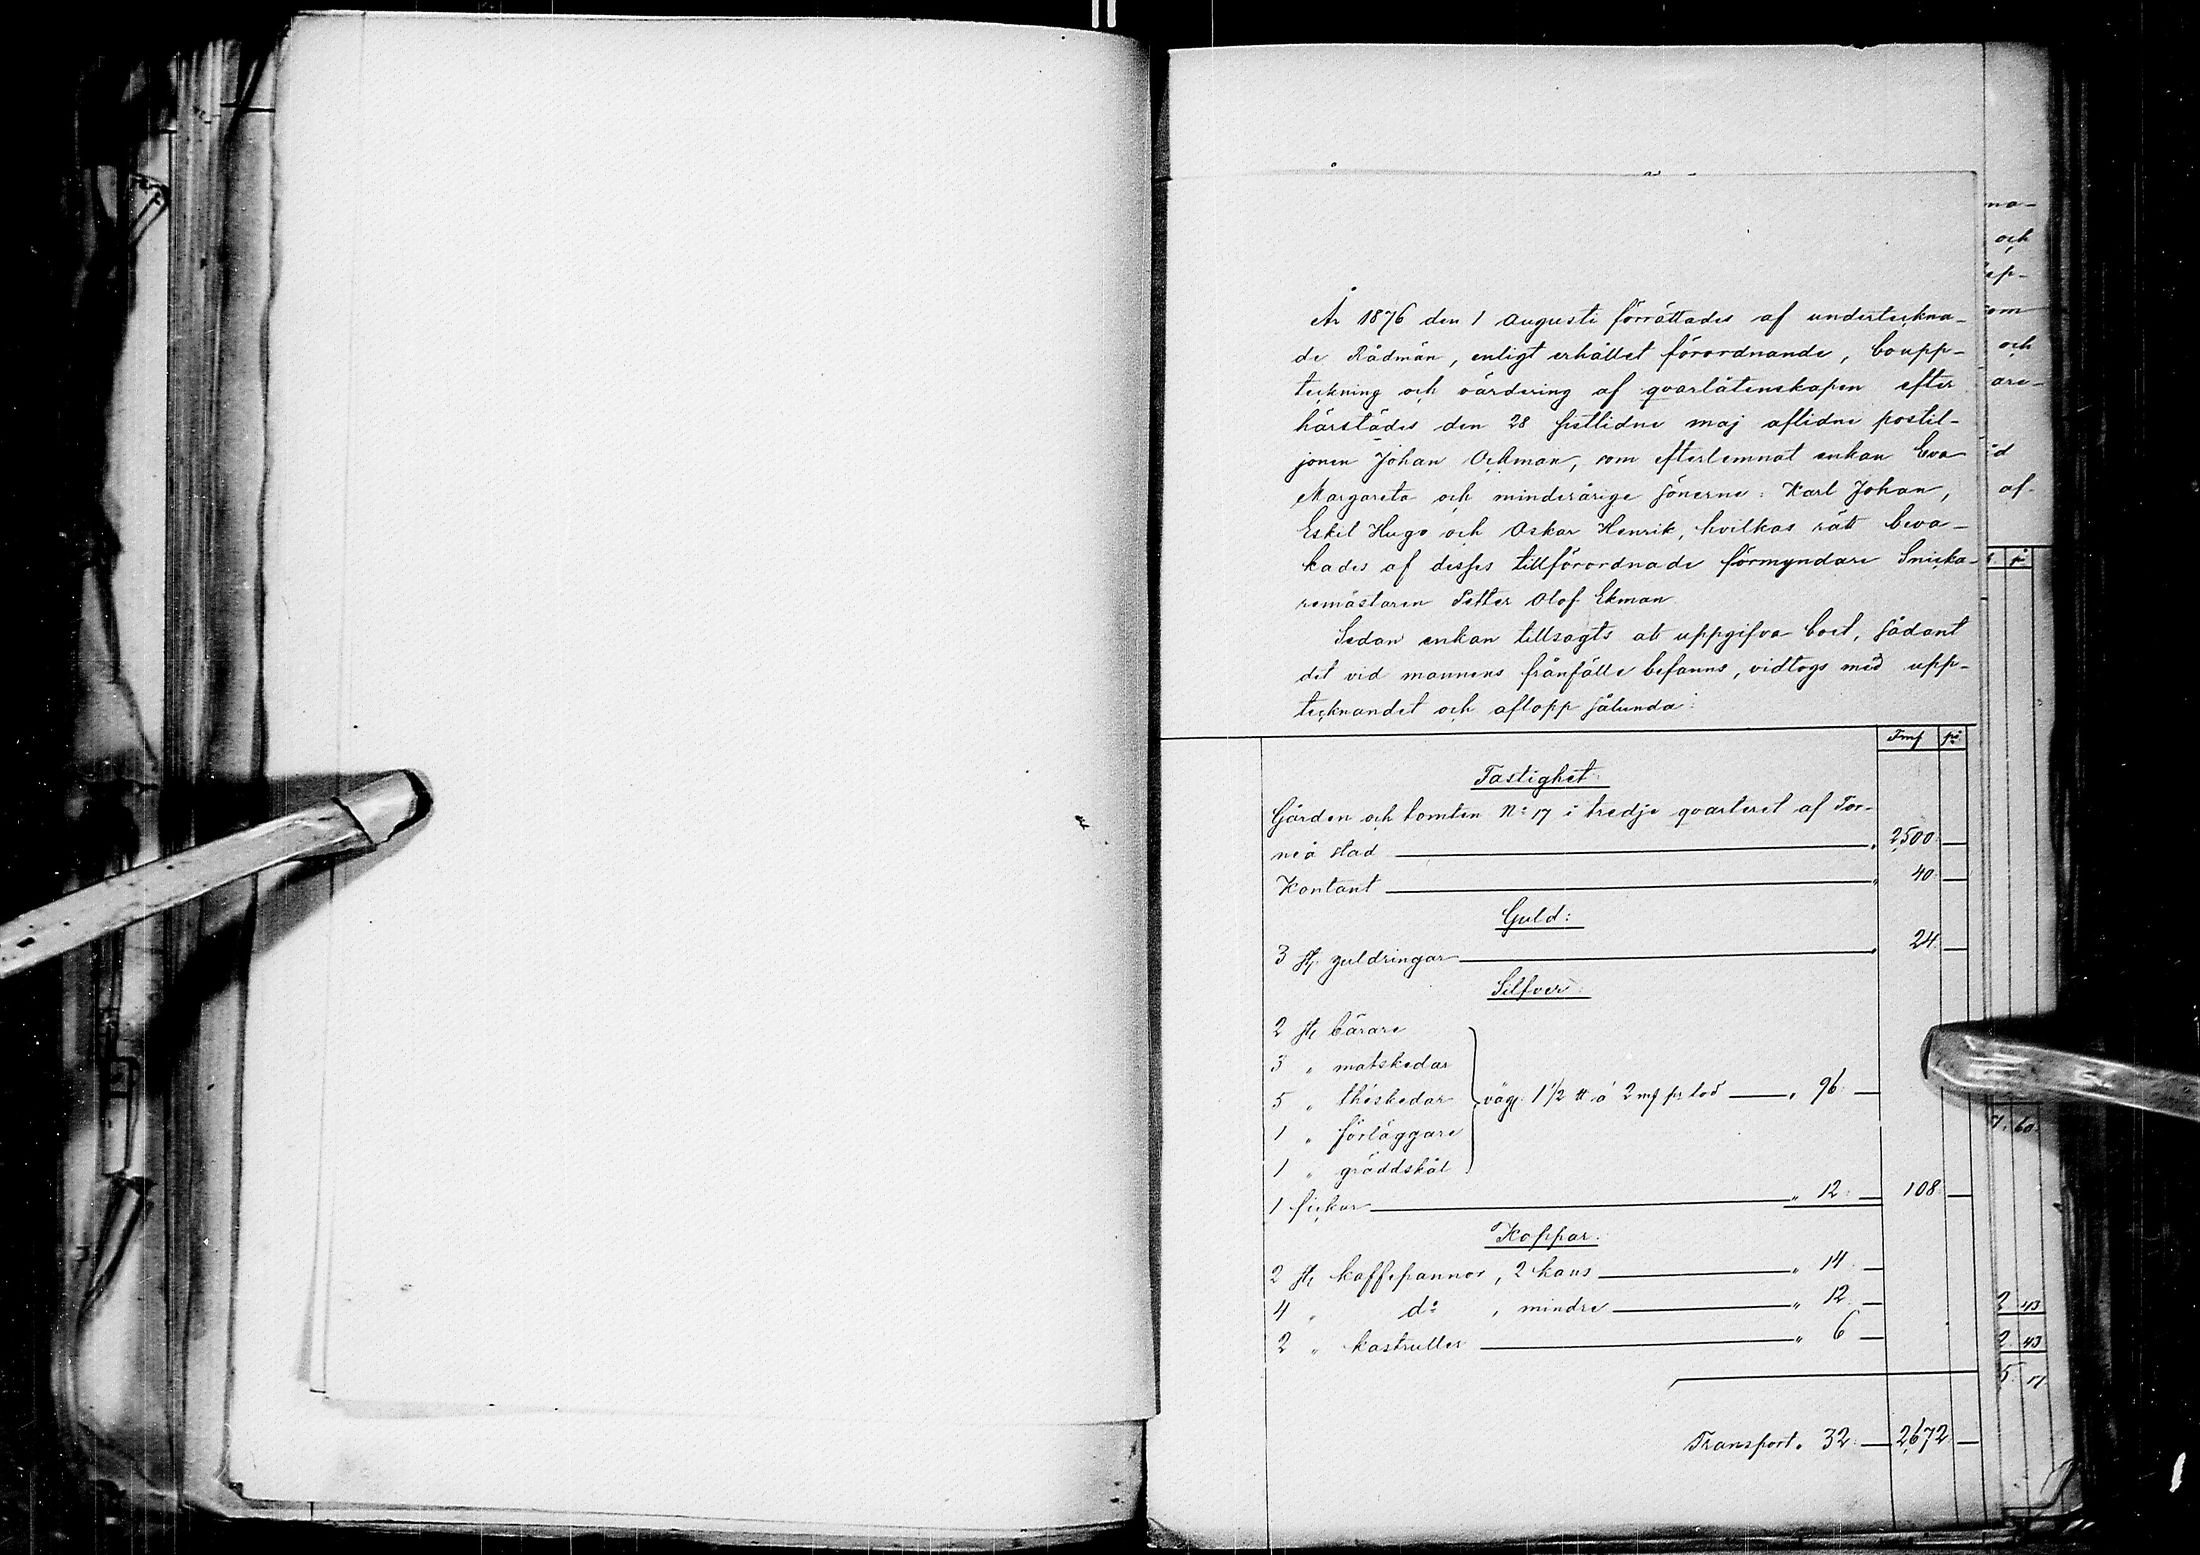 År 1876 den 1 Augusti förrättades af underteckna-
de Rådmän, enligt erhållet förordnande, boupp-
teckning och värdering af qvarlåtenskapen efter
härstädes den 28 sistlidne maj aflidne postil-
jonen Johan Ockman, som efterlemnat enkan Eva
Margareta och minderårige sönerne: Karl Johan,
Eskil Hugo och Oskar Henrik, hvilkas rätt beva-
kades af desses tillförordnade förmyndare Snicka-
remästaren Petter Olof Ekman.
Sedan enkan tillsagts att uppgifva boet, sådant
det vid mannens frånfälle befanns, vidtogs med upp-
tecknandet och aflopp sålunda:
Fmf pi
Fastighet:
Gården och tomten No 17 i tredje qvarteret af Tor-
neå stad — " 2,500 —
Kontant — " 40 —
Guld:
3 st. guldringar — " 24 —
Silfver:
2 st. bärare
3 " matskedar
5 " théskedar väg. 1 1/2 ℔ á 2 mf pr lod — " 96 —
1 " förläggare
1 " gräddskål
1 fickur — " 12 — 108 —
Koppar:
2 st. kaffepannor, 2 kans — " 14 —
4 " do , mindre — " 12 —
2 " kastruller — " 6 —
Transport " 32 — 2,672 —
na-
och
om
och
are-
af
7. 60.
2 43
2. 43
5. 17